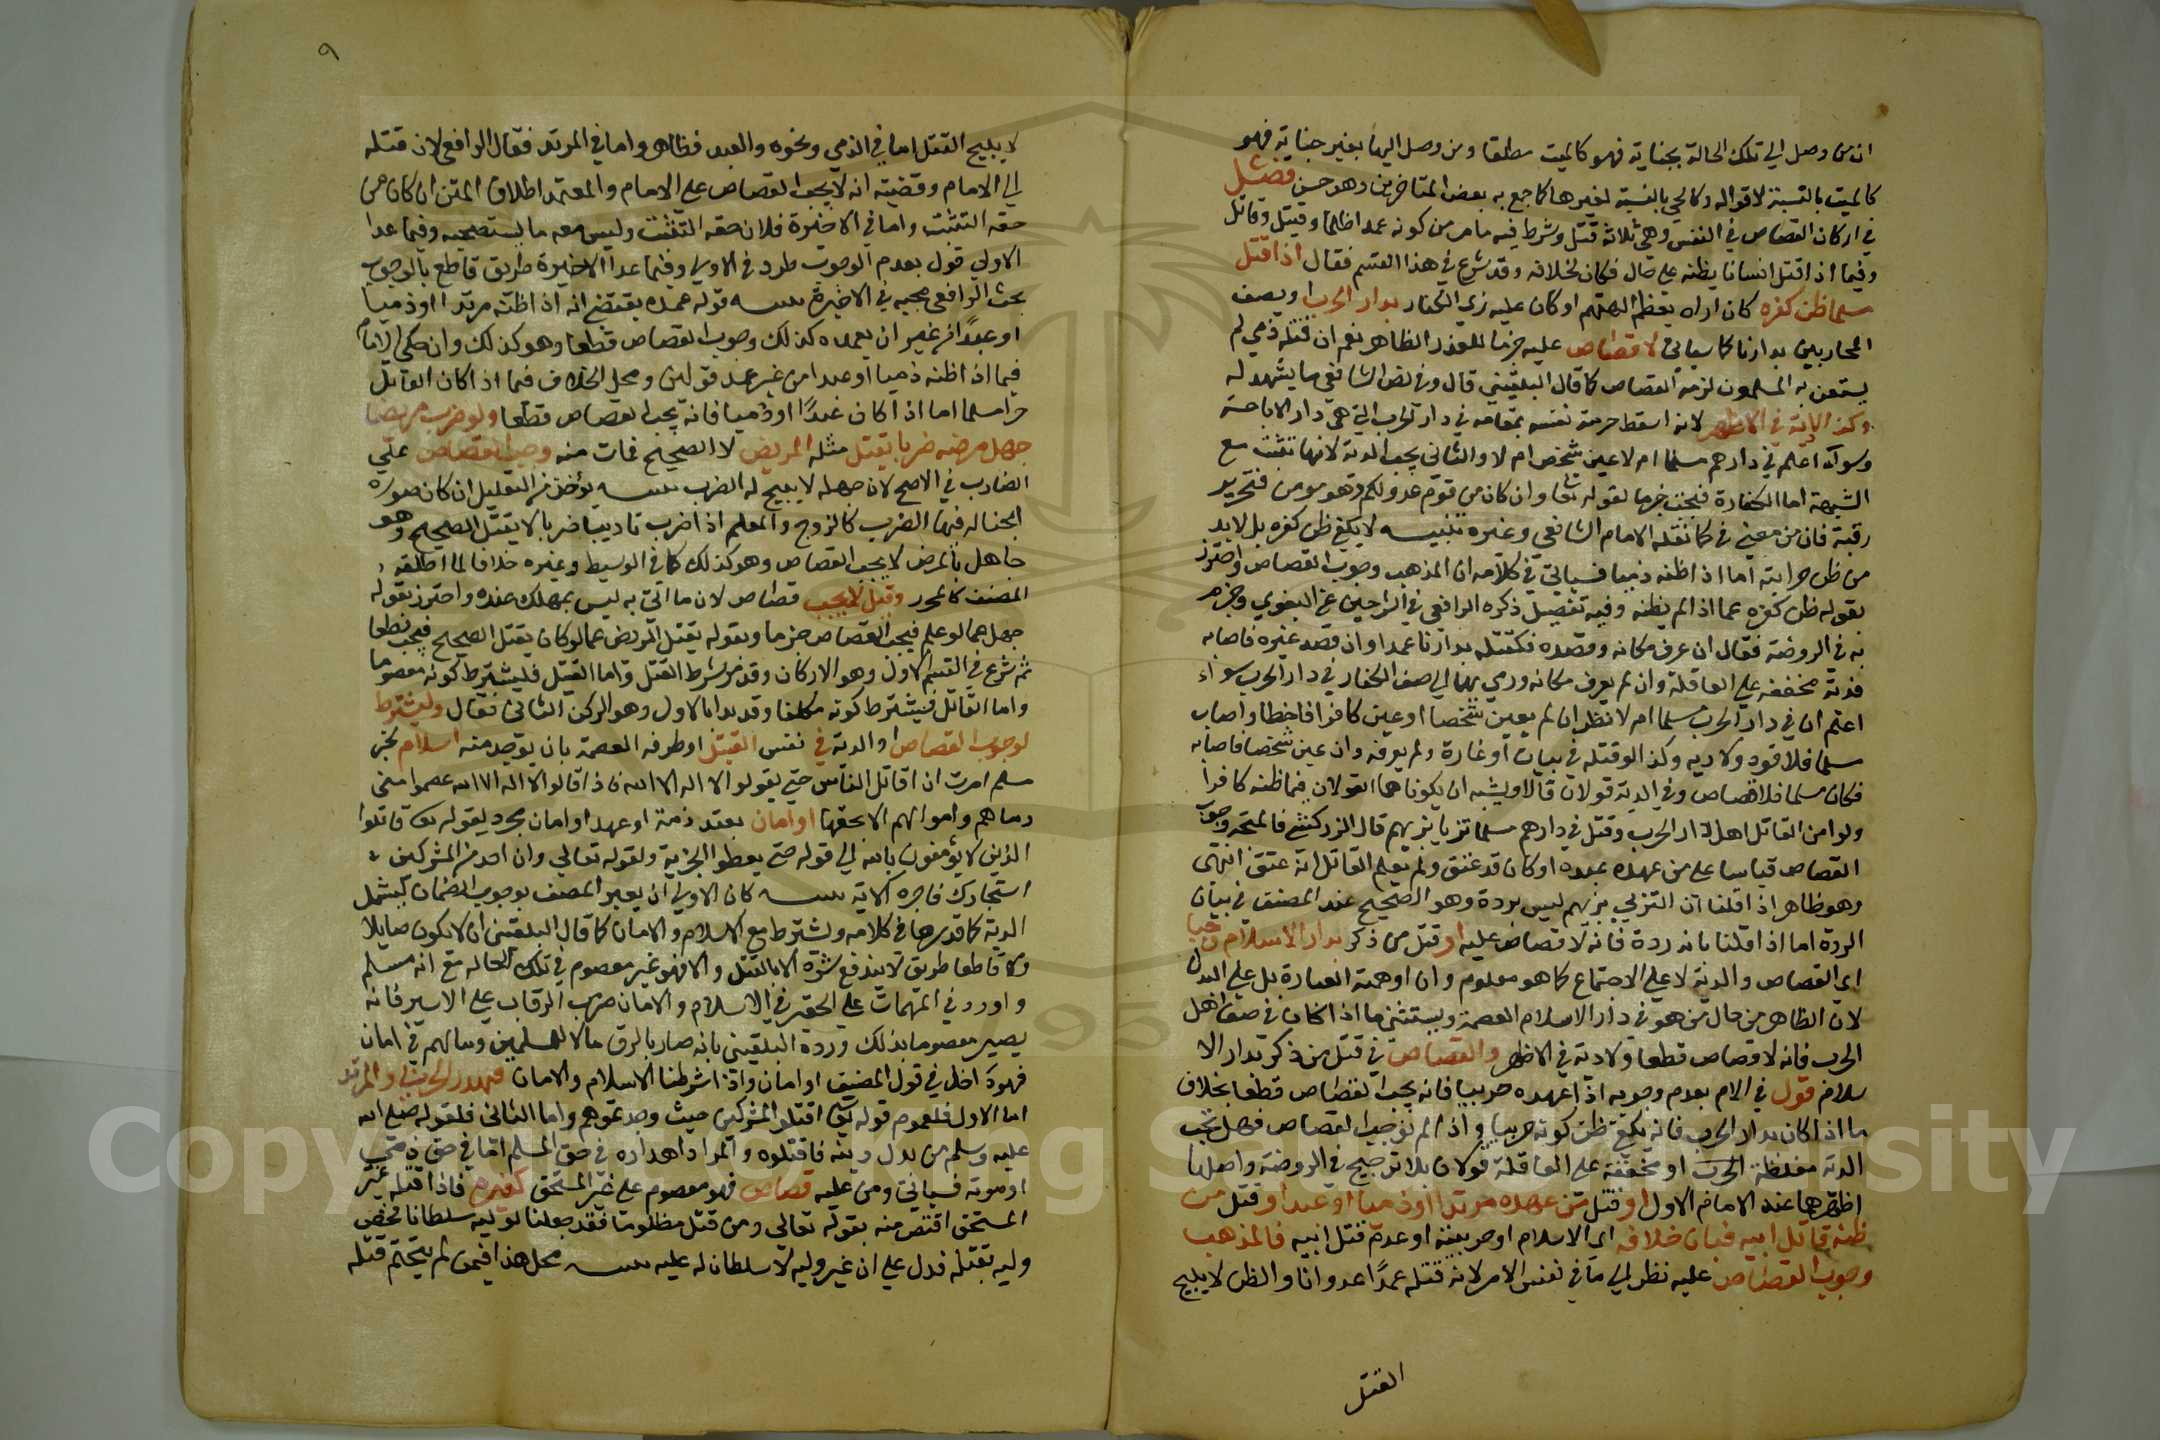 ان من وصل الي تلك الحالة بجناية فهو كالميت مطلقا ومن وصل اليها بغير جناية فهو
كالميت بالنسبة لاقواله وكالحي بالنسبة لغيرها كما جمع به بعض المتاخرين وهو حسن فصل
في اركان القصاص في النفس وهي ثلاثة قتل وشرط فيه ما مر من كونه عمدا ظلما وقتيل وقاتل
وفيما اذا قتل انسانا يظنه علي حال فكان بخلافه وقد شرع في هذا القسم فقال اذا قتل
مسلما ظن كفره كان راه يعظم الهتهم او كان عليه زي الكفار بدار الحرب او بصف
المحاربين بدارنا كما سياتي لا قصاص عليه جزما للعذر الظاهر نعم ان قتله ذمي لم
يستعن به المسلمون لزمه القصاص كما قال البلقيني قال وفي نص الشافعي ما يشهد له
وكذا لا دية في الاظهر لانه اسقط حرمة نفسه بمقامه في دار الحرب التي هي دار الاباحة
وسواء اعلم في دارهم مسلما ام لا عين شخص ام لا والثاني يجب الدية لانها تثبت مع
الشبهة اما الكفارة فتجب جزما لقوله تعا وان كان من قوم عدو لكم وهو مومن فتحرير
رقبة فان من معني في كما نقله الامام الشافعي وغيره تنبيه لا يكفي ظن كفره بل لابد
من ظن حرابته اما اذا ظنه ذميا فسياتي في كلامه ان المذهب وجوب القصاص واحترز
بقوله ظن كفره عما اذا لم يظنه وفيه تفصيل ذكره الرافعي في الراجين عن البغوي وجزم
به في الروضة فقال ان عرف مكانه وقصده فكقتله بدارنا عمدا وان قصد غيره فاصابه
فدية مخففة علي العاقلة وان لم يعرف مكانه ورمي سهما الي صف الكفار في دار الحرب سواء
اعلم ان في دار الحرب مسلما ام لا نظر ان لم يعين شخصا او عين كافرا فاخطا واصاب
مسلما فلا قود ولا دية وكذا لو قتله في بيات او غارة ولم يعرفه وان عين شخصا فاصابه
فكان مسلما فلا قصاص وفي الدية قولان قالا ويشبه ان يكونا هما القولان فيما ظنه كافرا
ولو امن القاتل اهل دار الحرب وقتل في دارهم مسلما تزيا بزيهم قال الزركشي فالمتجه وجوب
القصاص قياسا علي من عهده بعبده او كان قد عتق ولم يعلم القاتل انه عتق انتهى
وهو ظاهر اذا قلنا ان التزيي بزيهم ليس بردة وهو الصحيح عند المصنف في بيان
الردة اما اذا قلنا بانه ردة فانه لا قصاص عليه او قتل من ذكر بدار الاسلام وجبا
اي القصاص والدية لا علي الاجتماع كما هو معلوم وان اوهمته العبارة بل علي البدل
لان الظاهر من حال من هو في دار الاسلام العصمة ويستثني ما اذا كان في صف اهل
الحرب فانه لا قصاص قطعا ولا دية في الاظهر والقصاص في قتل من ذكر بدار الا
سلام قول في الام بعدم وجوبه اذا عهده حربيا فانه يجب القصاص قطعا بخلاف
ما اذا كان بدار الحرب فانه يكفي ظن كونه حربيا واذا لم نوجب القصاص فهل تجب
الدية مغلظة او مخففة علي العاقلة قولان بلا ترجيح في الروضة واصلها
اظهرهما عند الامام الاول او قتل من عهده مرتدا او ذميا او عبدا او قتل من
ظنه قاتل ابيه فبان خلافه اي الاسلام او حريته او عدم قتل ابيه فالمذهب
وجوب القصاص عليه نظرا الي ما في نفس الامر لانه قتله عمدا عدوانا والظن لا يبيح
القتل
٩
لا يبيح القتل اما في الذمي ونحوه والعبد فظاهر واما في المرتد فقال الرافعي لان قتله
الي الامام وقضيته انه لا يجب القصاص علي الامام والمعتمد اطلاق المتن ان كان من
حقه التثبت واما في الاخيرة فلان حقه التثبت وليس معه ما يستصحبه وفيما عدا
الاولي قول بعدم الوجوب طرد في الاولي وفيما عدا الاخيرة طريق قاطع بالوجوب
بحث الرافعي مجيه في الاخيرة تنبيه قوله عهده يقتضي انه اذا ظنه مرتدا او ذميا
او عبدا من غير ان يعهده كذلك وجوب القصاص قطعا وهو كذلك وان حكي الامام
فيما اذا ظنه ذميا او عبدا من غير عهد قولين ومحل الخلاف فيما اذا كان القاتل
حرا مسلما اما اذا كان عبدا او ذميا فانه يجب القصاص قطعا ولو ضرب مريضا
جهل مرضه ضربا يقتل مثله المريض لا الصحيح فمات منه وجب القصاص علي
الضارب في الاصح لان جهله لا يبيح له الضرب تنبيه يؤخذ من التعليل ان كان صوره
الجناله فيها الضرب كالزوج والمعلم اذا ضرب تاديبا ضربا لا يقتل الصحيح وهو
جاهل بالمرض لا يجب القصاص وهو كذلك كما في الوسيط وغيره خلافا لما اطلقه
المصنف كالمحرر وقيل لا يجب قصاص لان ما اتي به ليس بمهلك عنده واحترز بقوله
جهل عما لو علم فيجب القصاص جزما وبقوله يقتل المريض عما لو كان يقتل الصحيح فيجب قطعا
ثم شرع في القسم الاول وهو الاركان وقد مر شرط القتل واما القتيل فليشترط كونه معصوما
واما القاتل فيشترط كونه مكلفا وقد بدا بالاول وهو الركن الثاني فقال ويشترط
لوجوب القصاص او الدية في نفس القتيل او طرفه العصمة بان يوجد منه اسلام لخبر
مسلم امرت ان اقاتل الناس حتي يقولوا لا اله الا الله فاذا قالوا لا اله الا الله عصموا مني
دماهم واموالهم الا بحقها او امان بعقد ذمة او عهد او امان مجرد لقوله تعا قاتلوا
الذين لا يؤمنون بالله الي قوله حتي يعطوا الجزية ولقوله تعالي وان احد من المشركين
استجارك فاجره الاية تنبيه كان الاولي ان يعبر المصنف بوجوب الضمان ليشمل
الدية كما قدرها في كلامه ويشترط مع الاسلام والامان كما قال البلقيني ان لا يكون صايلا
ولا قاطع طريق لا يندفع شره الا بالقتل والا فهو غير معصوم في تلك الحاله مع انه مسلم
واورد في المهمات علي الحصر في الاسلام والامان ضرب الرقاب علي الاسير فانه
يصير معصوما بذلك ورده البلقيني بانه صار بالرق مالا للمسلمين ومالهم في امان
فهو داخل في قول المصنف او امان واذا اشرطنا الاسلام والامان فيهدر الحربي والمرتد
اما الاول فلعموم قوله تعالي اقتلوا المشركين حيث وجدتموهم واما الثاني فلقوله صلي الله
عليه وسلم من بدل دينه فاقتلوه والمراد اهداره في حق المسلم اما في حق ذمي
او مرتد فسياتي ومن عليه قصاص فهو معصوم علي غير المستحق كغيره فاذا قتله غير
المستحق اقتص منه بقوله تعالي ومن قتل مظلوما فقد جعلنا لوليه سلطانا فخص
وليه بقتله فدل علي ان غير وليه لا سلطان له عليه تنبيه محل هذا فيمن لم يتحتم قتله
Copy King Saud University